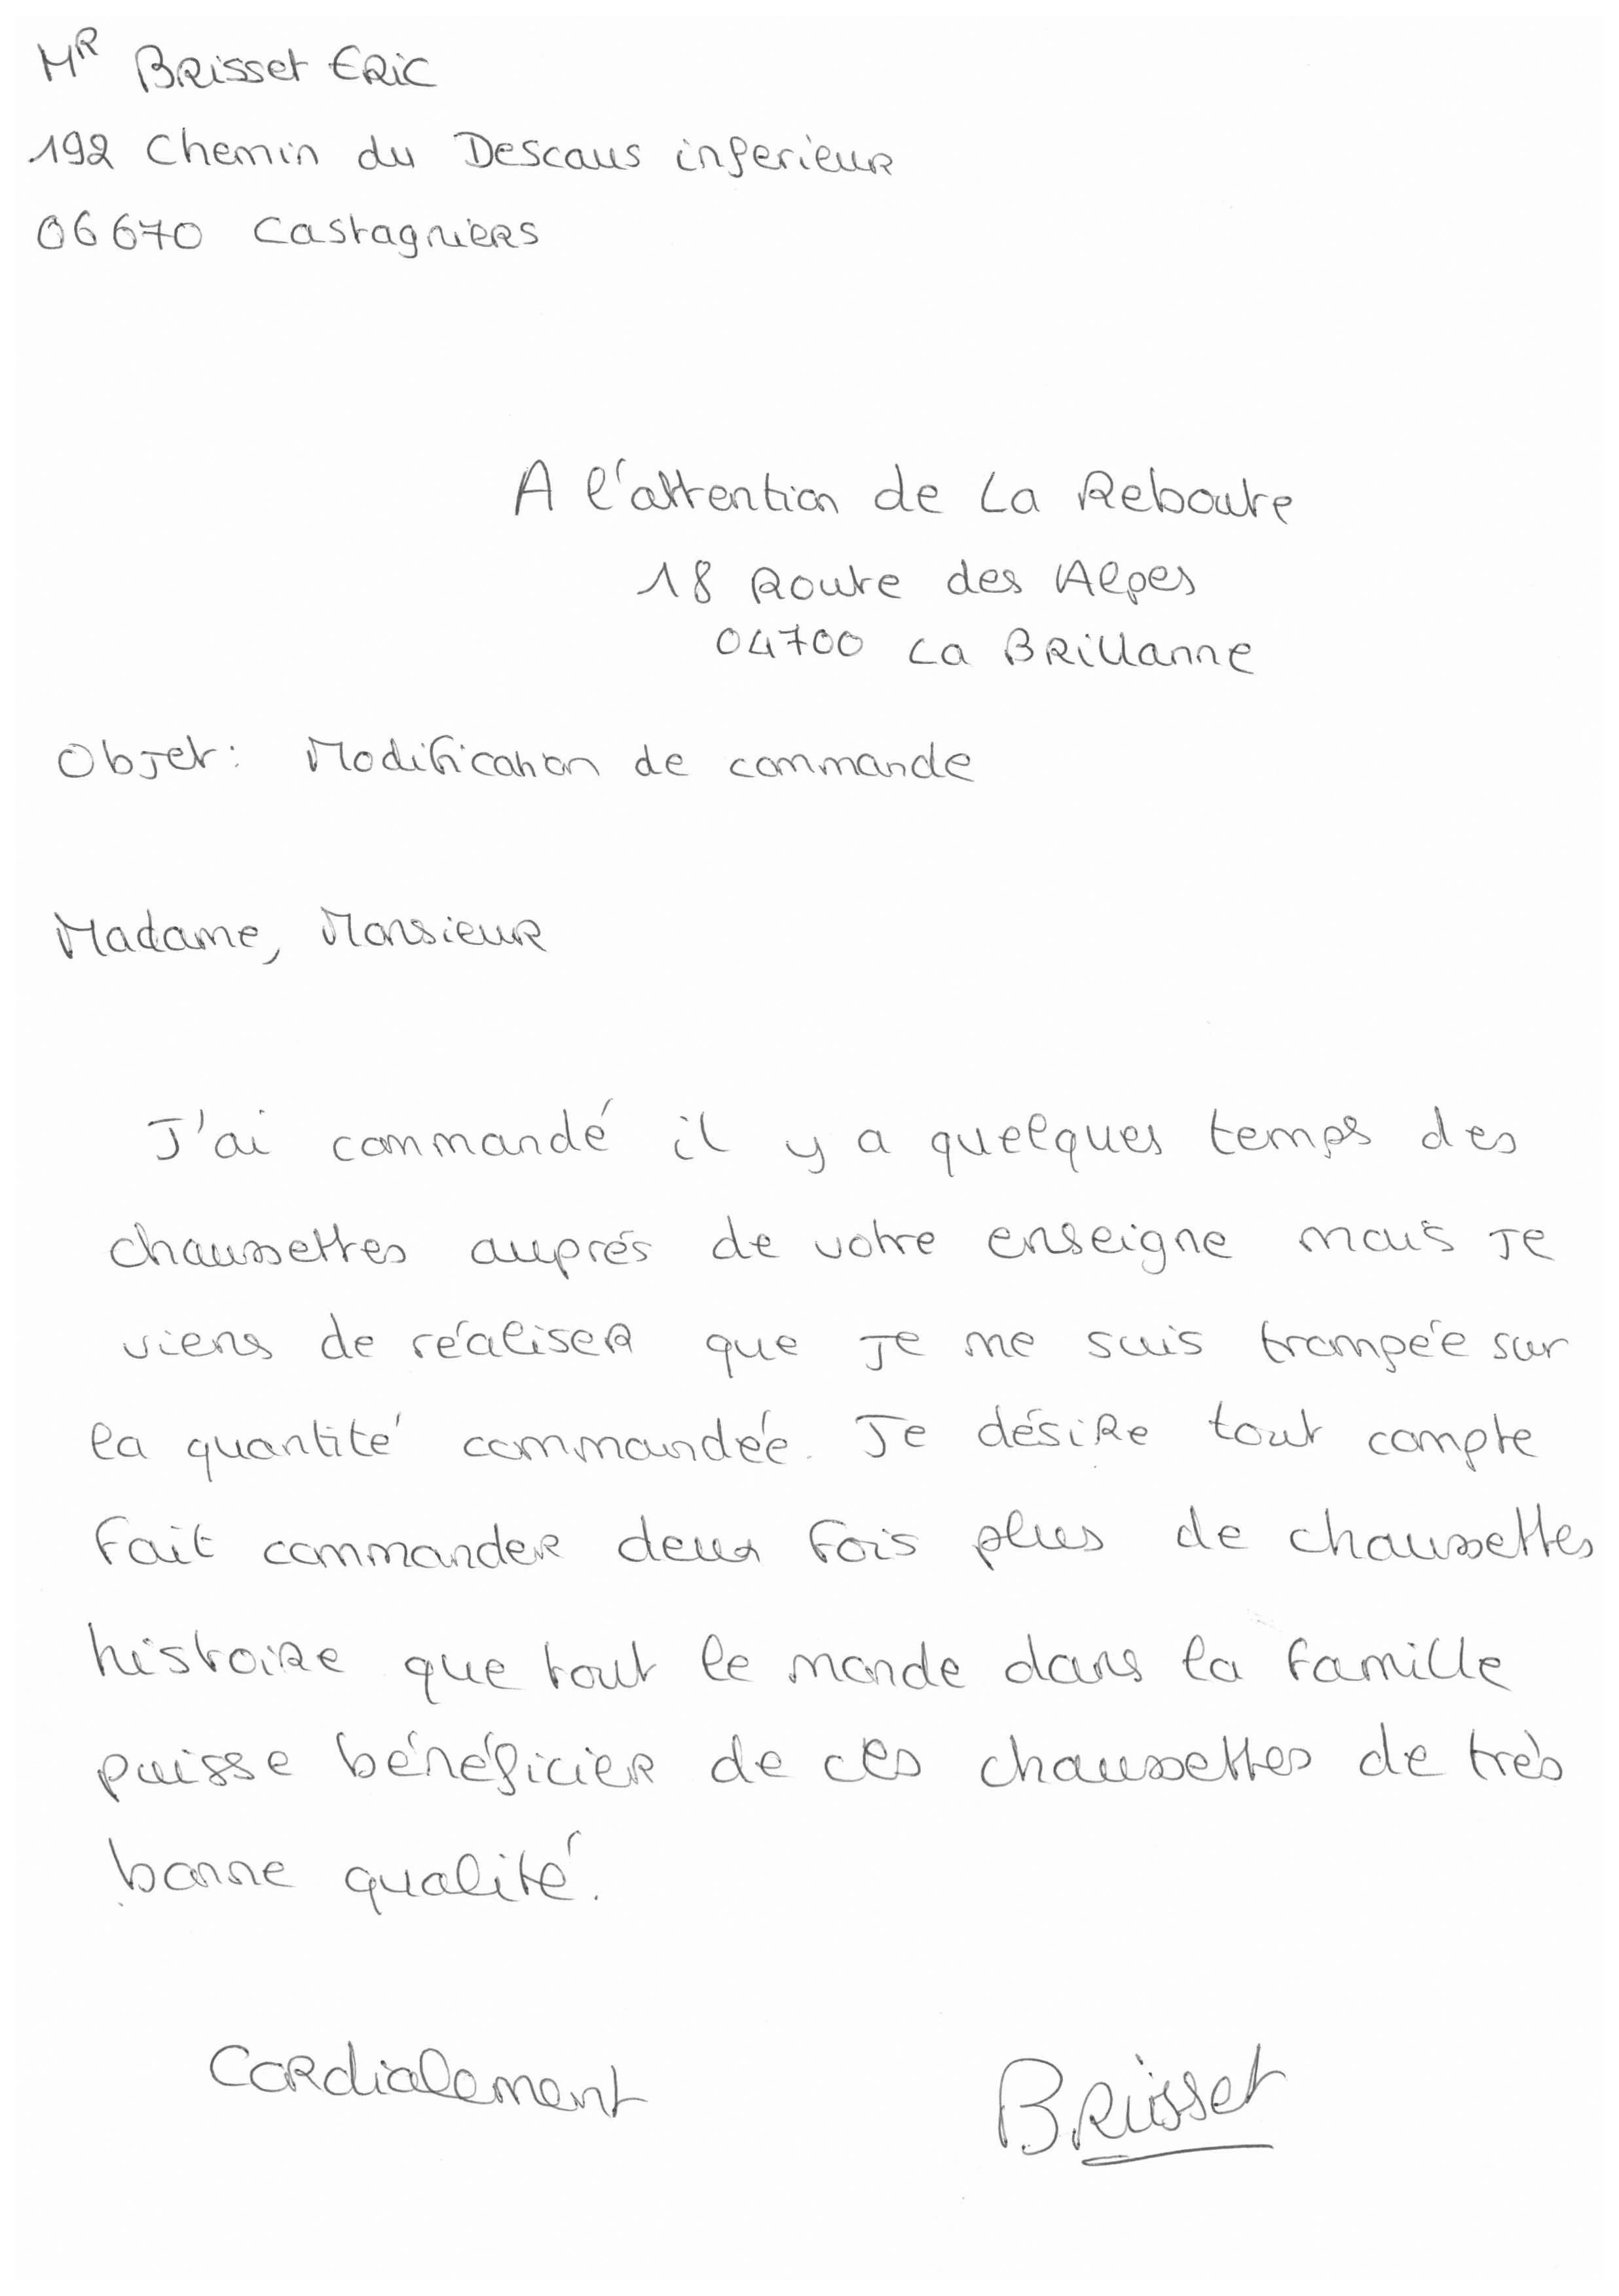 Mr Brisset Eric
192 Chemin du Descaus inferieur
06670 Castagniers
A l'attention de La Reboute
18 Route des Alpes
04700 La Brillanne
Objet : Modification de commande
Madame, Monsieur
J'ai commandé il y a quelques temps des
chaussettes auprés de votre enseigne mais je
viens de réaliser que je me suis trompée sur
la quantité commandée. Je désire tout compte
fait commander deux fois plus de chaussettes
histoire que tout le monde dans la famille
puisse bénéficier de ces chaussettes de très
bonne qualité.
Cordialement
Brisset